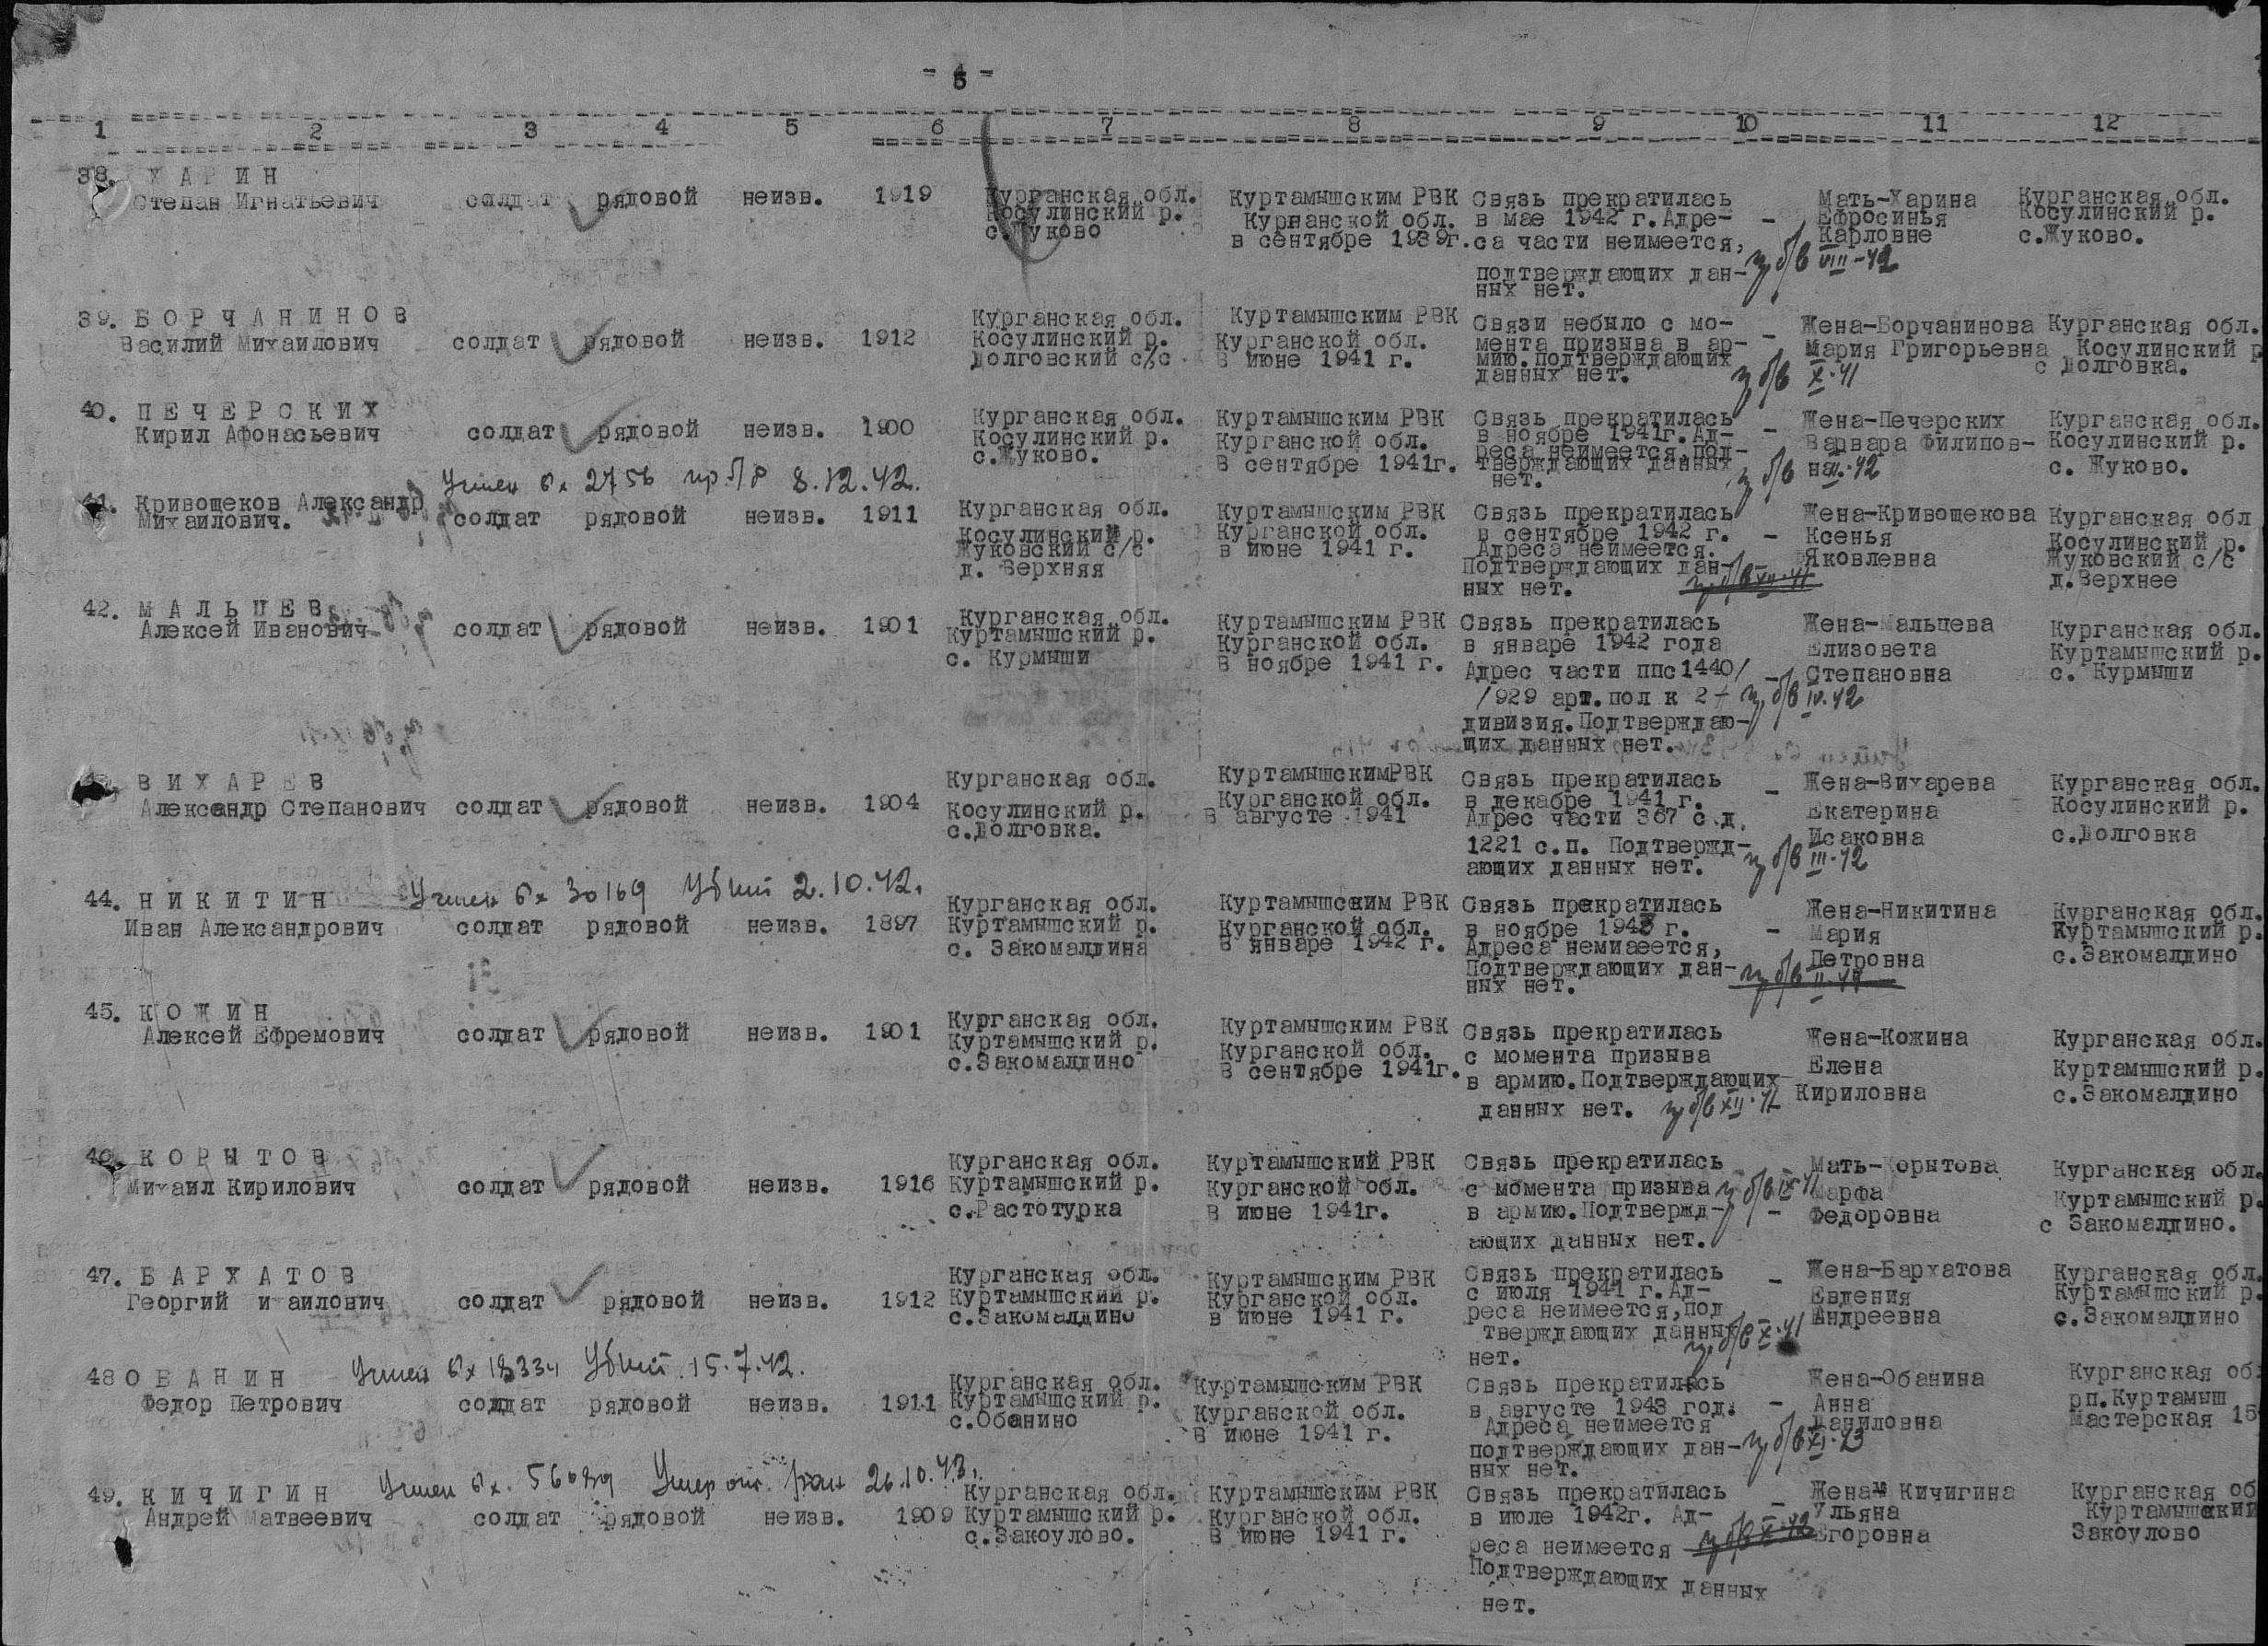 - 5 -
1 2 3 4 5 6 7 8 9 10 11 12
38. ХАРИН
Степан Игнатьевич солдат рядовой неизв. 1919
Курганская обл.
Косулинский р.
с.Жуково
Куртамышским РВК
Курганской обл.
в сентябре 1939г.
Связь прекратилась
в мае 1942 г. Адре-
са части неимеется,
подтверждающих дан-
ных нет.
-
Мать-Харина
Ефросинья
Карловне
VIII-42
Курганская обл.
Косулинский р.
с.Жуково.
39. БОРЧАНИНОВ
Василий Михаилович солдат рядовой неизв. 1912
Курганская обл.
Косулинский р.
Долговский с/с
Куртамышским РВК
Курганской обл.
В июне 1941 г.
Связи небыло с мо-
мента призыва в ар-
мию.подтверждающих
данных нет.
-
Жена-Борчанинова
Мария Григорьевна
б/в X-41
Курганская обл.
Косулинский р
с Долговка.
40. ПЕЧЕРСКИХ
Кирил Афонасьевич солдат рядовой неизв. 1900
Курганская обл.
Косулинский р.
с.Жуково.
Куртамышским РВК
Курганской обл.
В сентябре 1941г.
Связь прекратилась
в ноябре 1941г. Ад-
реса неимеется,под-
тверждающих данных
нет.
-
Жена-Печерских
Варвара Филипов-
Курганская обл.
Косулинский р.
с. Жуково.
Учтен 8.12.42.
41. Кривощеков Александр
Михаилович. солдат рядовой неизв. 1911
Курганская обл.
Косулинский р.
Жуковский с/с
д. Верхняя
Куртамышским РВК
Курганской обл.
в июне 1941 г.
Связь прекратилась
в сентябре 1942 г.
Адреса неимеется.
Подтверждающих дан-
ных нет.
-
Жена-Кривощекова
Ксенья
Яковлевна
Курганская обл
Косулинский р.
Жуковский с/с
д.Верхнее
42. МАЛЬЦЕВ
Алексей Иванович солдат рядовой неизв. 1901
Курганская обл.
Куртамышский р.
с. Курмыши
Куртамышским РВК
Курганской обл.
В ноябре 1941 г.
Связь прекратилась
в январе 1942 года
Адрес части ппс1440/
/929 арт.пол к 2
дивизия.Подтверждаю-
щих данных нет.
-
Жена-Мальцева
Елизовета
Степановна
б/в IV-42
Курганская обл.
Куртамышский р.
с. Курмыши
ВИХАРЕВ
Александр Степанович солдат рядовой неизв. 1904
Курганская обл.
Косулинский р.
с.Долговка.
КуртамышскимРВК
Курганской обл.
В августе 1941
Связь прекратилась
в декабре 1941 г.
Адрес части 367 с.д.
1221 с.п. Подтвержд-
ающих данных нет.
-
Жена-Вихарева
Екатерина
Исаковна
б/в III-42
Курганская обл.
Косулинский р.
с.Долговка
Учтен вх 30169 Убит 2.10.42.
44. НИКИТИН
Иван Александрович солдат рядовой неизв. 1897
Курганская обл.
Куртамышский р.
с. Закомалдина
Куртамышсеим РВК
Курганской обл.
В январе 1942 г.
Связь прекратилась
в ноябре 1943 г.
Адреса немиаеется,
Подтверждающих дан-
ных нет.
-
Жена-Никитина
Мария
Петровна
Курганская обл.
Куртамышский р.
с.Закомалдино
45. КОЖИН
Алексей Ефремович солдат рядовой неизв. 1901
Курганская обл.
Куртамышский р.
с.Закомалдино
Куртамышским РВК
Курганской обл.
В сентябре 1941г.
Связь прекратилась
с момента призыва
в армию.Подтверждающих
данных нет. б/в XII-41
Жена-Кожина
Елена
Кириловна
Курганская обл.
Куртамышский р.
с.Закомалдино
46. КОРЫТОВ
Михаил Кирилович солдат рядовой неизв. 1916
Курганская обл.
Куртамышский р.
с.Растотурка
Куртамышский РВК
Курганской обл.
В июне 1941г.
Связь прекратилась
с момента призыва
в армию.Подтвержд-
ающих данных нет.
б/в IX-41
-
Мать-Корытова
Марфа
Федоровна
Курганская обл.
Куртамышский р.
с Закомалдино.
47. БАРХАТОВ
Георгий и аилович солдат рядовой неизв. 1912
Курганская обл.
Куртамышский р.
с.Закомалдино
Куртамышским РВК
Курганской обл.
в июне 1941 г.
Связь прекратилась
с июля 1941 г. Ад-
реса неимеется,под
тверждающих данных
нет.
б/в X-41
-
Жена-Бархатова
Евдения
Андреевна
Курганская обл.
Куртамышский р.
с.Закомалдино
Учтен вх 18334 Убит 15.7.42.
48 ОБАНИН
Федор Петрович солдат рядовой неизв. 1911
Курганская обл.
Куртамышский р.
с.Обанино
Куртамышским РВК
Курганской обл.
В июне 1941 г.
Связь прекратилась
в августе 1943 год.
Адреса неимеется
подтверждающих дан-
ных нет.
-
Жена-Обанина
Анна
Даниловна
б/в XI-43
Курганская об
рп.Куртамыш
Мастерская 15
Учтен вх. Умер от ран 26.10.43.
49. КИЧИГИН
Андрей Матвеевич солдат рядовой неизв. 1909
Курганская обл.
Куртамышский р.
с.Закоулово.
Куртамышским РВК
Курганской обл.
В июне 1941 г.
Связь прекратилась
в июле 1942г. Ад-
реса неимеется
Подтверждающих данных
нет.
-
Жена Кичигина
Ульяна
Егоровна
Курганская об
Куртамышский
Закоулово